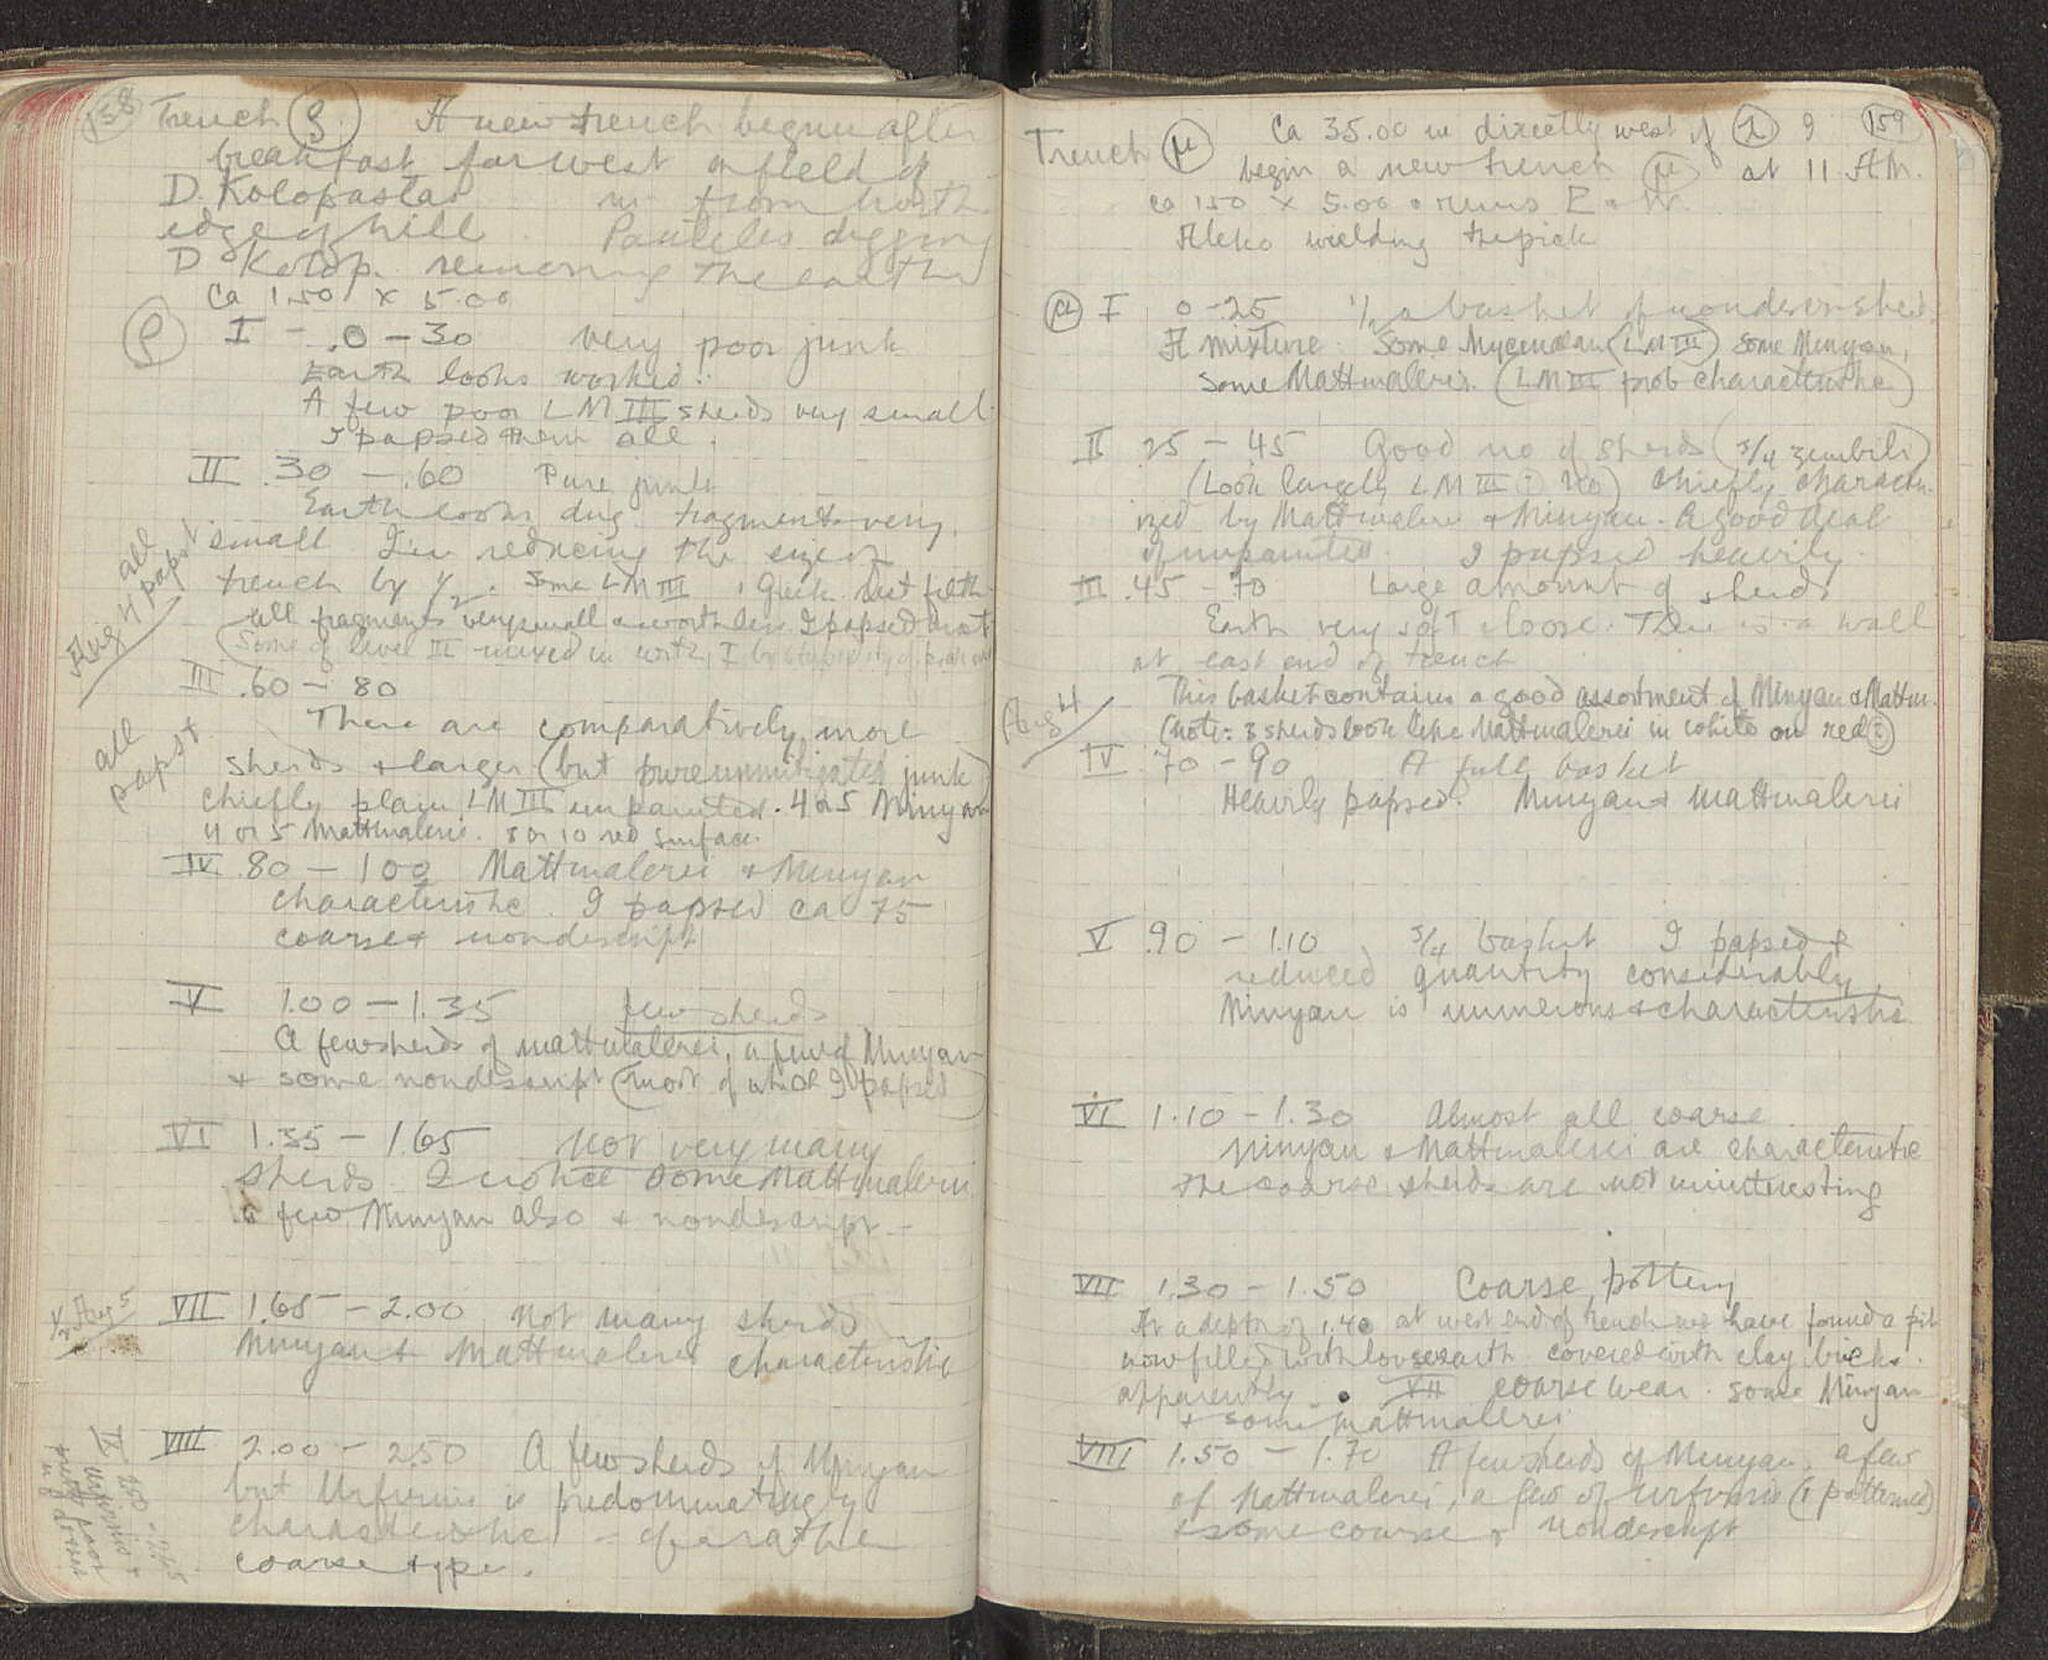 158 Trench ρ A new trench begun after
breakfast far west on field of
D. Kolopastas m from north
edge of hill Panteles digging
D Kolop. removing the earth
Ca 1.50 x 5.00
ρ I - .0 - 30 very poor junk
Earth looks worked.
A few poor LM III sherds very small
I papsed them all.
II .30 - .60 Pure junk
Earth looks dug. fragments very
small I'm reducing the size of
trench by 1/2. Some LM III, 1 Greek. rest filth
all fragments very small & worthless I papsed most
(Some of level III mixed in with I by stupidity of
all papst
Aug 4
III .60 - 80
There are comparatively more
sherds & larger (but pure unmitigated junk)
chiefly plain, LM III unpainted. 4 or 5 Minyan
4 or 5 Mattmalerei. 8 or 10 red surface.
all
papst
IV .80 - 100 Mattmalerei & Minyan
characteristic. I papsed ca 75
coarse & nondescript
V 1.00 - 1.35 few sherds
A few sherds of mattmalerei, a few of Minyan
& some nondescript (most of which I papsed)
VI 1.35 - 1.65 Not very many
sherds. I notice some Mattmalerei
a few Minyan also & nondescript -
1/2 Aug 5
VII 1.65 - 2.00 Not many sherds
Minyan & Mattmalerei characteristic
VIII 2.00 - 2.50 A few sherds of Minyan
but Urfirnis is predominatingly
characteristic - of a rather
coarse type.
IX 2.50 - 2.65
Urfirnis &
pretty poor
159
Trench μ Ca 35.00 m directly west of λ I
begin a new trench μ at 11 A.M.
ca 1.50 x 5.00 & runs E & W.
Aleko wielding the pick
μ I 0 - .25 1/2 a basket of nondescr. sherds.
A mixture. Some Mycenaean (LM III) some Minyan,
some Mattmalerei. (LM III prob characteristic)
II .25 - 45 Good no of sherds (3/4 zembili)
(Look largely LM III ? No) Chiefly character-
ized by Mattmalerei & Minyan. A good deal
of unpainted. I papsed heavily.
III .45 - 70 Large amount of sherds
Earth very soft & loose. There is a wall
at east end of trench
This basket contains a good assortment of Minyan & Mattm.
(Note: 3 sherds look like Mattmalerei in white on red ?)
Aug 4
IV .70 - 90 A full basket
Heavily papsed. Minyan & Mattmalerei
V .90 - 1.10 3/4 basket I papsed &
reduced quantity considerably.
Minyan is numerous & characteristic
VI 1.10 - 1.30 Almost all coarse
Minyan & Mattmalerei are characteristic
The coarse sherds are not uninteresting
VII 1.30 - 1.50 Coarse pottery
At a depth of 1.40 at west end of trench we have found a pit
now filled with loose earth covered with clay bricks.
apparently. VII coarse wear. some Minyan
& some mattmalerei
VIII 1.50 - 1.70 A few sherds of Minyan, a few
of Mattmalerei, a few of urfirnis (1 patterned)
& some coarse & nondescript